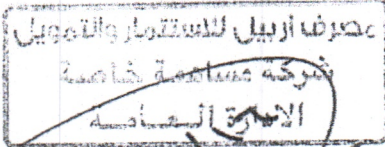 مصرف أربيل للاستثمار والتمويل
شركة مساهمة خاصة
الادارة العامة